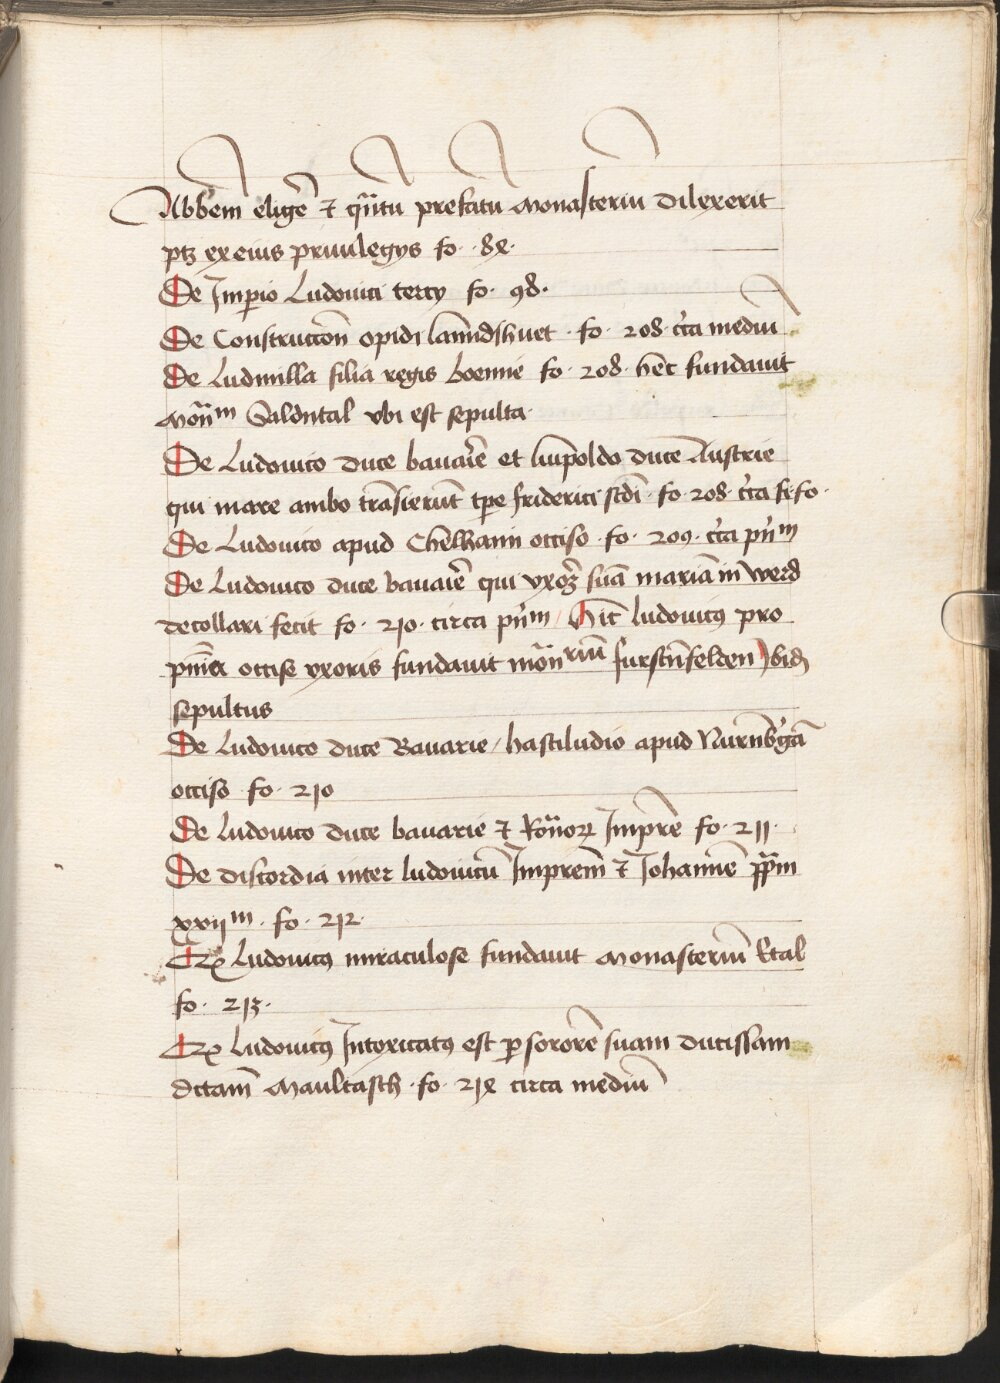 Abbem̄ elige᷑ et qn̄tū prefatū Monasteriū dilexerit
ptꝫ ex eius priuilegijs fo. 8x.
De Imperio Ludouici tercij fo. 98.
De Constructōn opidi lanndshuet . fo . 208 . cͥca mediū
De Ludmilla filia regis boemie fo . 208 . hec̄ fundauit
Mon̄m Saldntal vbi est sepulta .
De Ludouico duce bauarie et luipoldo duce Austrie
qui mare ambo trāsierūt tpe friderici scdī . fo . 208 . cͥca fi . fo .
De Ludouico apud Chelhaim occiso . fo . 209 . cͥca pn̄m
De Ludouico duce bauarie qui vxorē suā mariā in werd
decollari fecit fo . 210 . circa pn̄m / Hic ludouicꝰ pro
pnīa occise vxoris fundauit mōn̄riū furstnfelden Ibidē
sepultus
De Ludouico duce Bauarie / hastiludio apud Nurnbͥgā
occiso fo . 210
De ludouico duce bauarie et Romorꝝ Impr̄e fo . 211 .
De discordia inter ludouicū Imprem̄ et Johannē ppam
xxijm . fo . 212 .
Rex Ludouicꝰ miraculose fundauit Monasteriū Etal
fo . 213 .
Rex Ludouicꝰ Intoxicatꝰ est per sororē suam ducissam
dctam̄ Maultasch . fo . 21x circa mediū